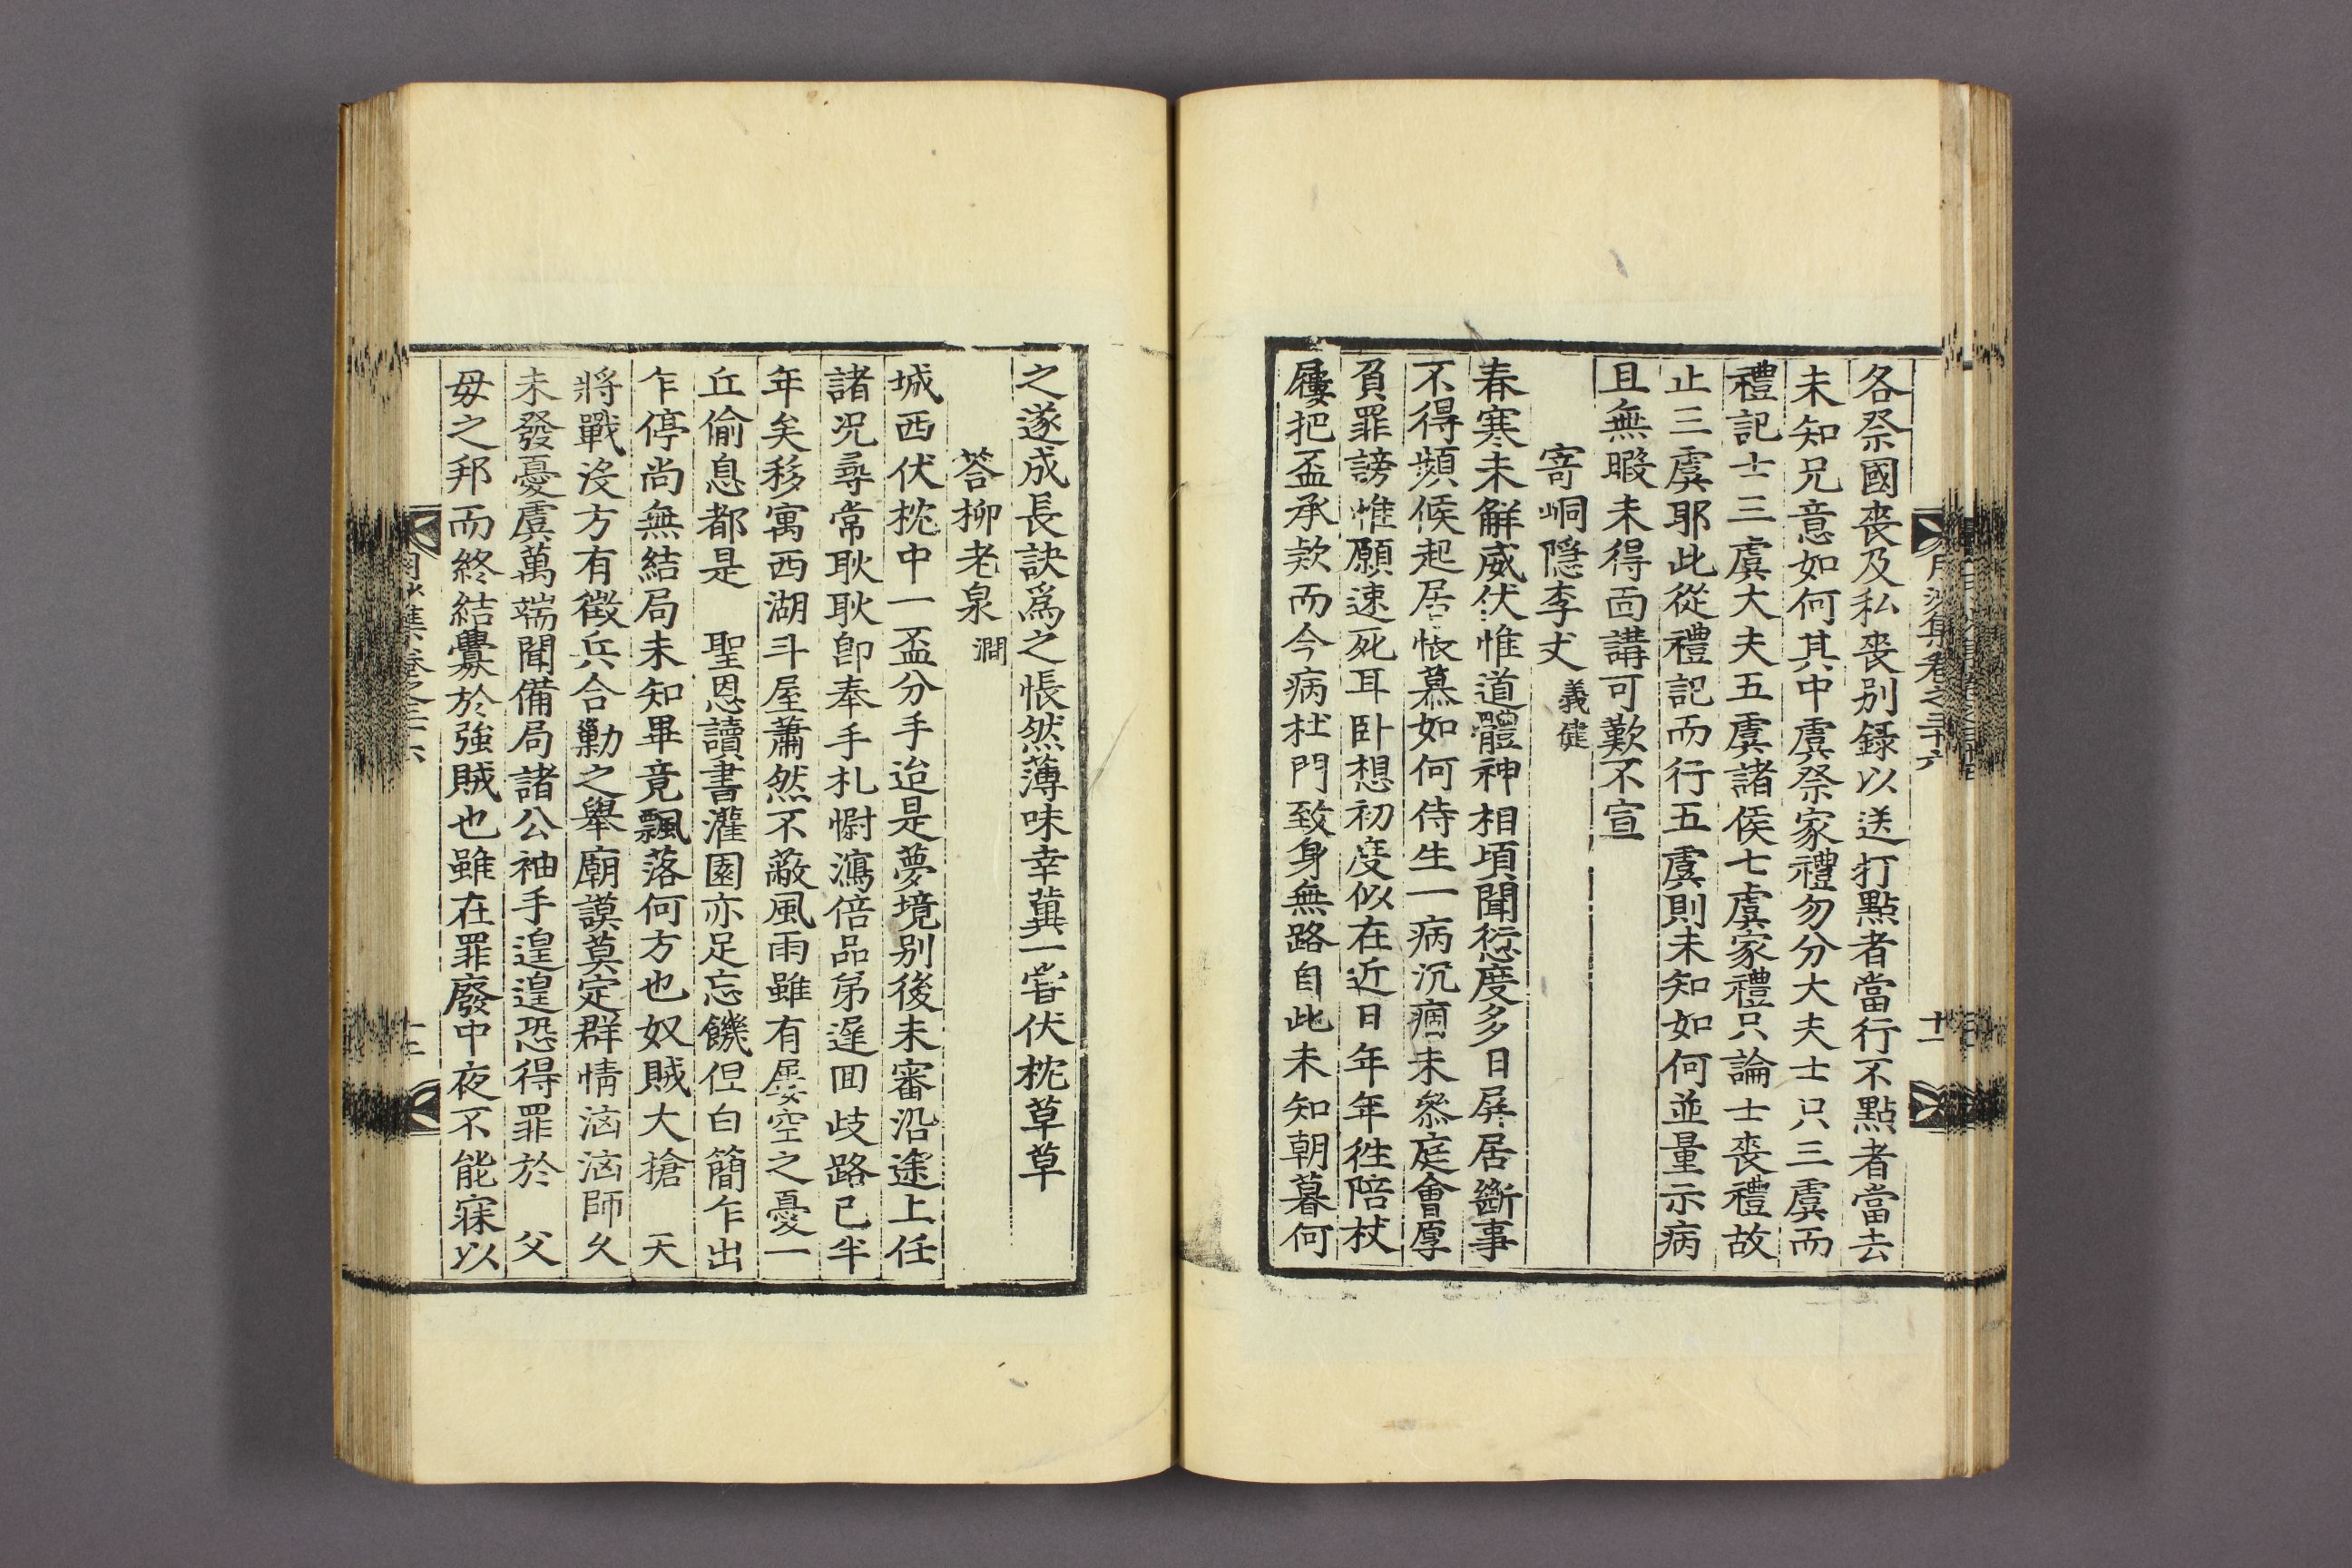 各祭國喪及私喪别錄以送打點者當行不點者當去
未知兄意如何其中虞祭家禮勿分大夫士只三虞而
禮記士三虞大夫五虞諸侯七虞家禮只論士喪禮故
止三虞耶此從禮記而行五虞則未知如何並量示病
且無暇未得面講可歎不宣
寄峒隱李丈 義健
春寒未解威伏惟道體神相頃聞愆度多日屏居斷事
不得頻候起居悵慕如何侍生一病沉痼未叅庭會厚
負罪謗惟願速死耳卧想初度似在近日年年徃陪杖
屨把盃承欵而今病杜門致身無路自此未知朝暮何
月沙集卷之三十六
十一
之遂成長訣爲之悵然薄味幸冀一嘗伏枕草草
答柳老泉 澗
城西伏枕中一盃分手迨是夢境别後未審沿途上任
諸况尋常耿耿卽奉手札慰瀉倍品弟遲回歧路已半
年矣移寓西湖斗屋蕭然不蔽風雨雖有屢空之憂一
丘偷息都是 聖恩讀書灌園亦足忘饑但白簡乍出
乍停尚無結局未知畢竟飄落何方也奴賊大搶 天
將戰沒方有徵兵合勦之舉廟謨莫定群情洶洶師久
未發憂虞萬端聞備局諸公袖手遑遑恐得罪於 父
母之邦而終結釁於強賊也雖在罪廢中夜不能寐以